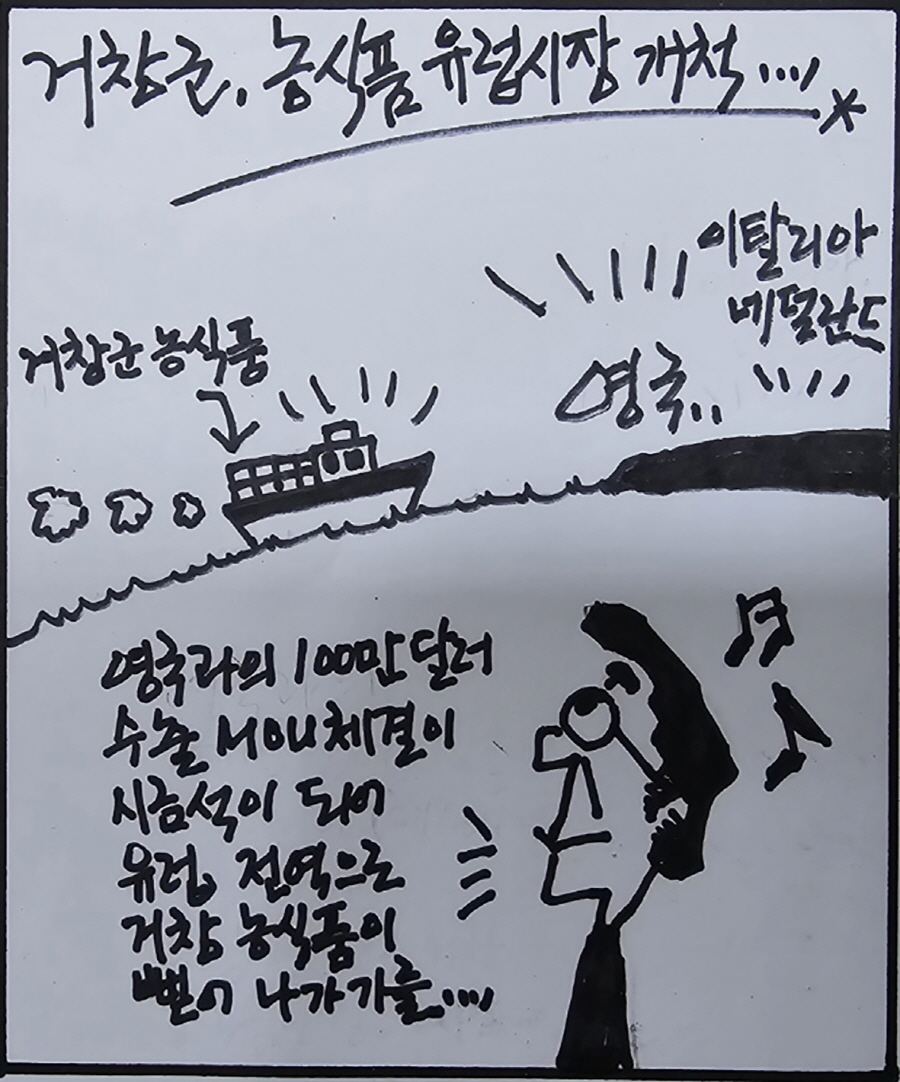 거창군, 농식품 유럽시장 개척....
이탈리아
네덜란드
영국..
거창군 농식품
영국과의 100만달러
수출 MOU체결이
시금석이 되어
유럽 전역으로
거창 농식품이
뻗어 나가기를....